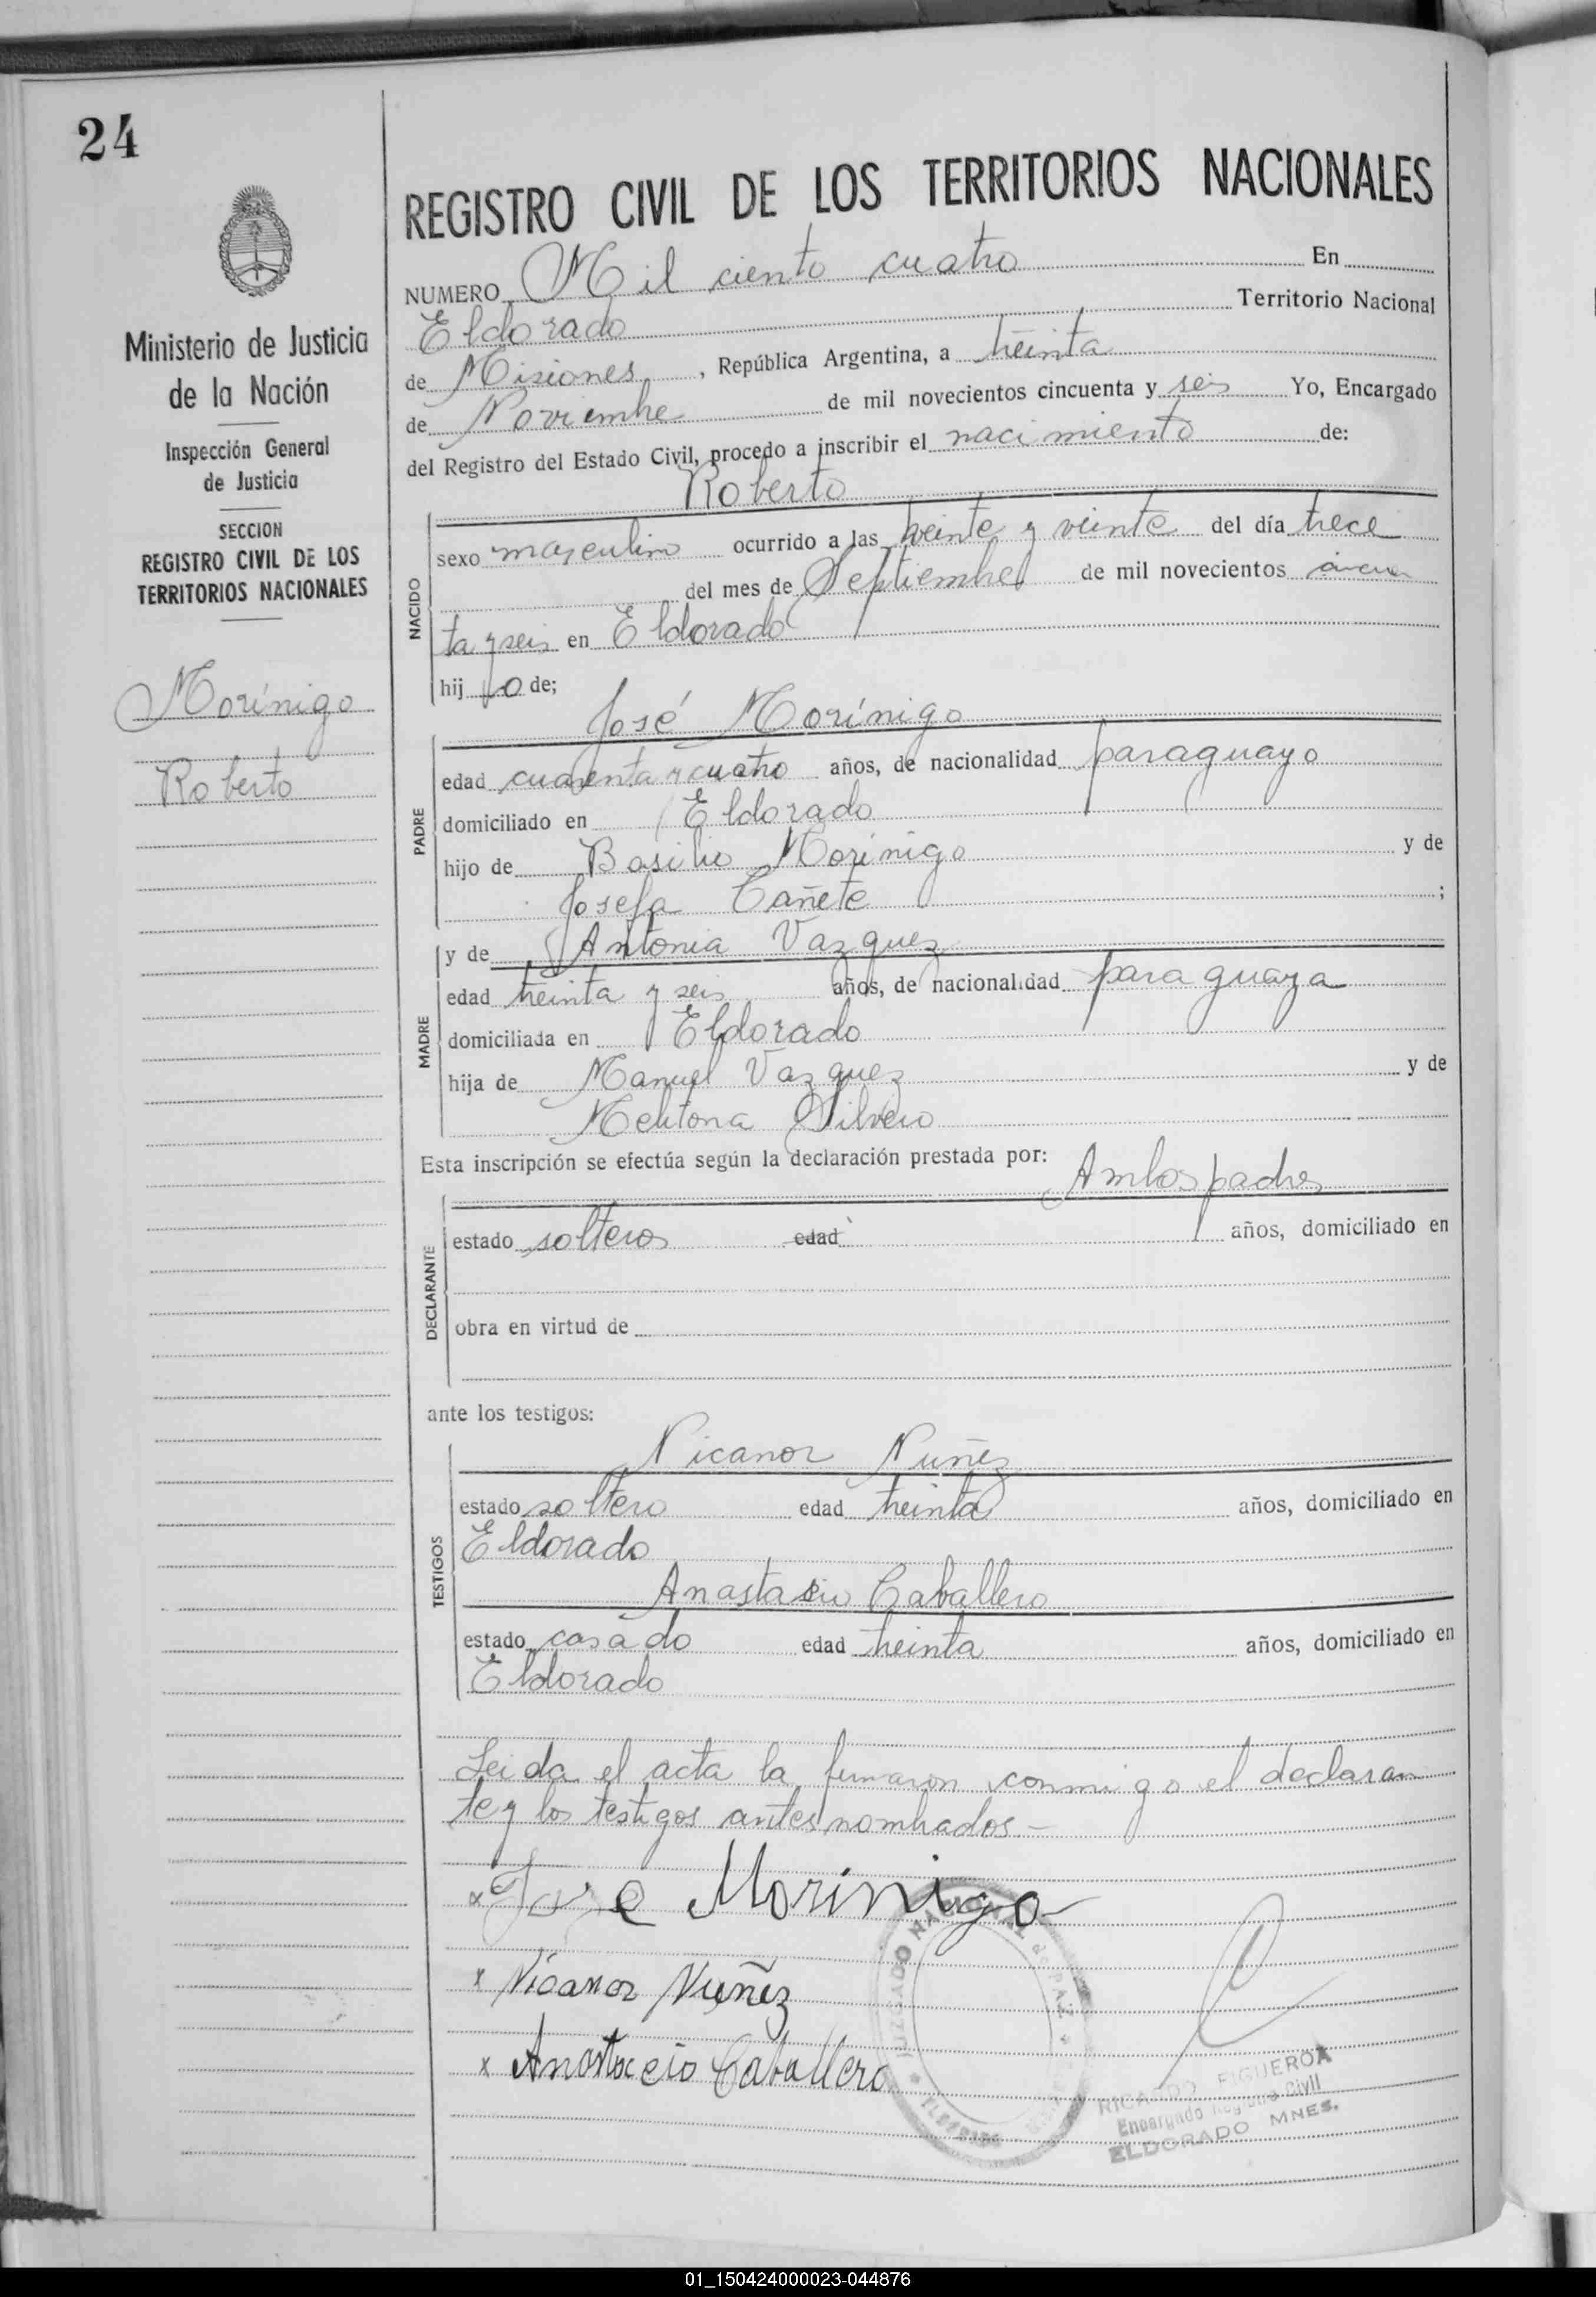 24
Ministerio de Justicia
de la Nación
Inspección General
de Justicia
SECCION
REGISTRO CIVIL DE LOS
TERRITORIOS NACIONALES
Morínigo
Roberto
REGISTRO CIVIL DE LOS TERRITORIOS NACIONALES
NUMERO Mil ciento cuatro En
Eldorado Territorio Nacional
de Misiones, República Argentina, a treinta
de Noviembre de mil novecientos cincuenta y seis Yo, Encargado
del Registro del Estado Civil, procedo a inscribir el nacimiento de:
Roberto
NACIDO
sexo masculino ocurrido a las veinte y veinte del día trece
del mes de Septiembre de mil novecientos cincuen
ta y seis en Eldorado
hijo de;
José Morínigo
PADRE
edad cuarenta y cuatro años, de nacionalidad paraguayo
domiciliado en Eldorado
hijo de Basilio Morínigo y de
Josefa Cañete ;
y de Antonia Vazquez
MADRE
edad treinta y seis años, de nacionalidad paraguaya
domiciliada en Eldorado
hija de Manuel Vazquez y de
Melitona Silvero
Esta inscripción se efectúa según la declaración prestada por: Ambos padres
DECLARANTE
estado solteros edad años, domiciliado en
obra en virtud de
ante los testigos:
Nicanor Nuñez
TESTIGOS
estado soltero edad treinta años, domiciliado en
Eldorado
Anastasio Caballero
estado casado edad treinta años, domiciliado en
Eldorado
Leida el acta la firmaron conmigo el declaran
te y los testigos antes nombrados.-
x Jose Morinigo
x Nicanor Nuñez
x Anastacio Caballero
JUZGADO NACIONAL de PAZ
ELDORADO
RICARDO FIGUEROA
Encargado Registro Civil
ELDORADO MNES.
01_150424000023-044876